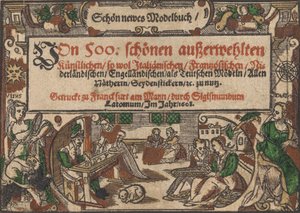 Schön newes Modelbuch
Von 500. schönen außerwehlten
Künstlichen / so wol Italiänischen / Frantzösischen / Ni-
derländischen / Engelländischen / als Teutschen Mödeln / Allen
Näherin / Seydenstickern / ꝛc. zu nutz.
Getruckt zu Franckfurt am Mayn / durch Sigismundum
Latomum / Im Jahr